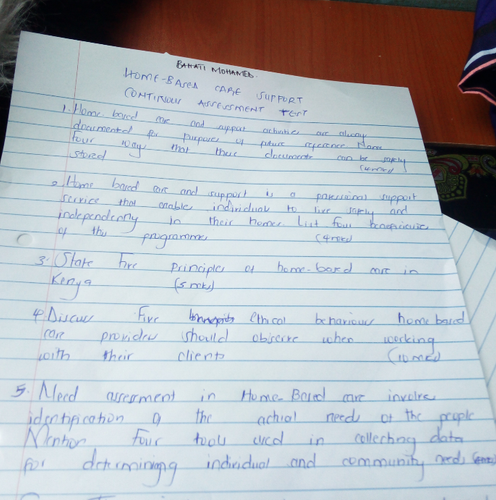 BAHATI MOHAMED.
HOME-BASED CARE SUPPORT
CONTINUOUS ASSESSMENT TEST
1. Home based care and support activities are always
documented for purposes of future reference. Name
four ways that these documents can be safely
stored (4mks)
2. Home based care and support is a professional support
service that enable individual to live safely and
independently in their homes. List four beneficiaries
of the programme (4mks)
3. State five principles of home-based care in
Kenya (5mks)
4. Discuss five ethical behaviour home based
care providers should observe when working
with their clients (10mks)
5. Need assessment in Home-Based care involve
identification of the actual needs of the people
Mention four tools used in collecting data
for determining individual and community needs